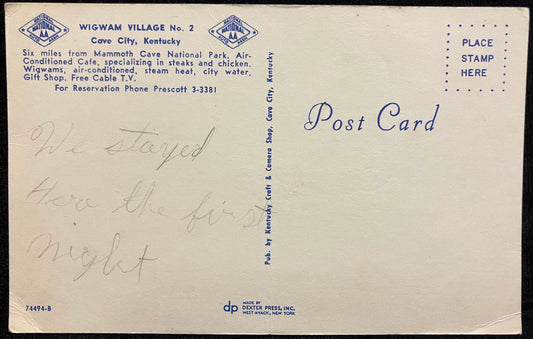 WIGWAM VILLAGE No. 2
Cave City, Kentucky
Six miles from Mammoth Cave National Park. Air-
Conditioned Cafe, specializing in steaks and chicken.
Wigwams, air-conditioned, steam heat, city water,
Gift Shop. Free Cable T.V.
For Reservation Phone Prescott 3-3381
NATIONAL
AA
NATIONAL
AA
We stayed
Here the first
night
74494-B
Pub. by Kentucky Craft & Camera Shop, Cave City, Kentucky
dp
MADE BY
DEXTER PRESS, INC.
WEST NYACK, NEW YORK
Post Card
PLACE
STAMP
HERE